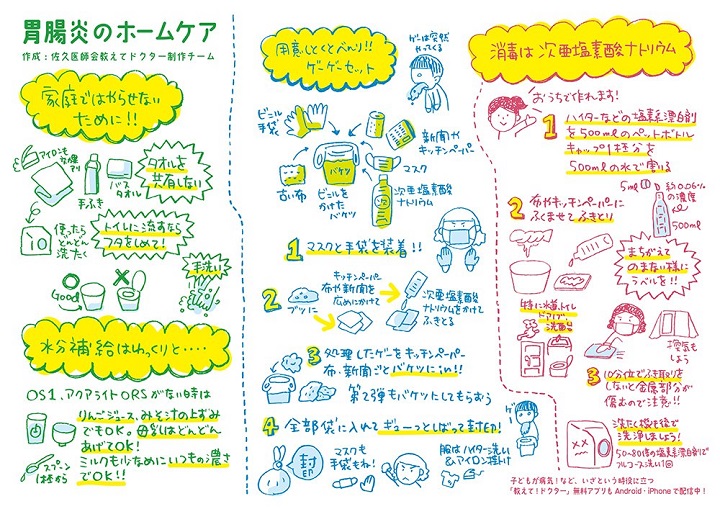 胃腸炎のホームケア
作成：佐久医師会教えてドクター制作チーム
家庭ではやらせない
ために!!
アイロンも
効果アリ
手ふき
バス
タオル
タオルを
共有しない
使ったら
どんどん
洗たく
トイレに流すなら
フタをしめて！
手洗い
Good
水分補給はゆっくりと····
OS1、アクアライトORSがない時は
りんごジュース、みそ汁の上ずみ
でもOK。母乳はどんどん
あげてOK！
ミルクも少なめにいつもの濃さ
でOK!!
スプーン
1杯から
用意しとくとべんり!!
ゲーゲーセット
ゲーは突然
やってくる
ビニール
手袋
新聞や
キッチンペーパー
マスク
古い布
バケツ
ビニールを
かけた
バケツ
次亜塩素酸
ナトリウム
1 マスクと手袋を装着!!
2 ブツに
キッチンペーパー
布や新聞を
広めにかけて
次亜塩素酸
ナトリウムをかけて
ふきとる
3 処理したゲーをキッチンペーパー
布・新聞ごとバケツにin!!
第2弾もバケツにしてもらおう
4 全部袋に入れてギューっとしばって封印！
封
マスクも
手袋もね！
服はハイター洗い
&アイロンがけ
ゲー
消毒は 次亜塩素酸ナトリウム
おうちで作れます！
1 ハイターなどの塩素系漂白剤
を500mlのペットボトル
キャップ1杯分を
500mlの水で割る
5ml
約0.06%
の濃度
500ml
2 布やキッチンペーパーに
ふくませてふきとり
まちがえて
のまない様に
ラベルを!!
特に水道、トイレ
ドアノブ、
洗面器
換気も
しよう
3 10分位で水ぶき取りを
しないと金属部分が
傷むのでご注意!!
洗たく機も後で
洗浄しましょう！
50〜80倍の塩素系漂白剤で
フルコース洗い1回
子どもが病気！など、いざという時役に立つ
「教えて！ドクター」無料アプリもAndroid・iPhoneで配信中！